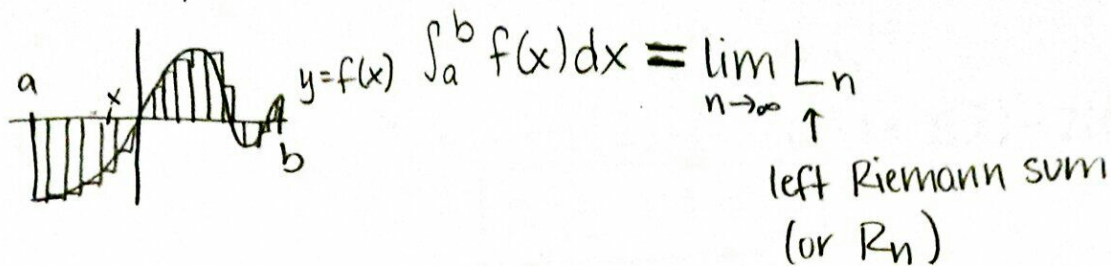 a
x
y=f(x)
b
∫ₐᵇ f(x)dx = lim Lₙ
n→∞ ↑
left Riemann sum
(or Rₙ)